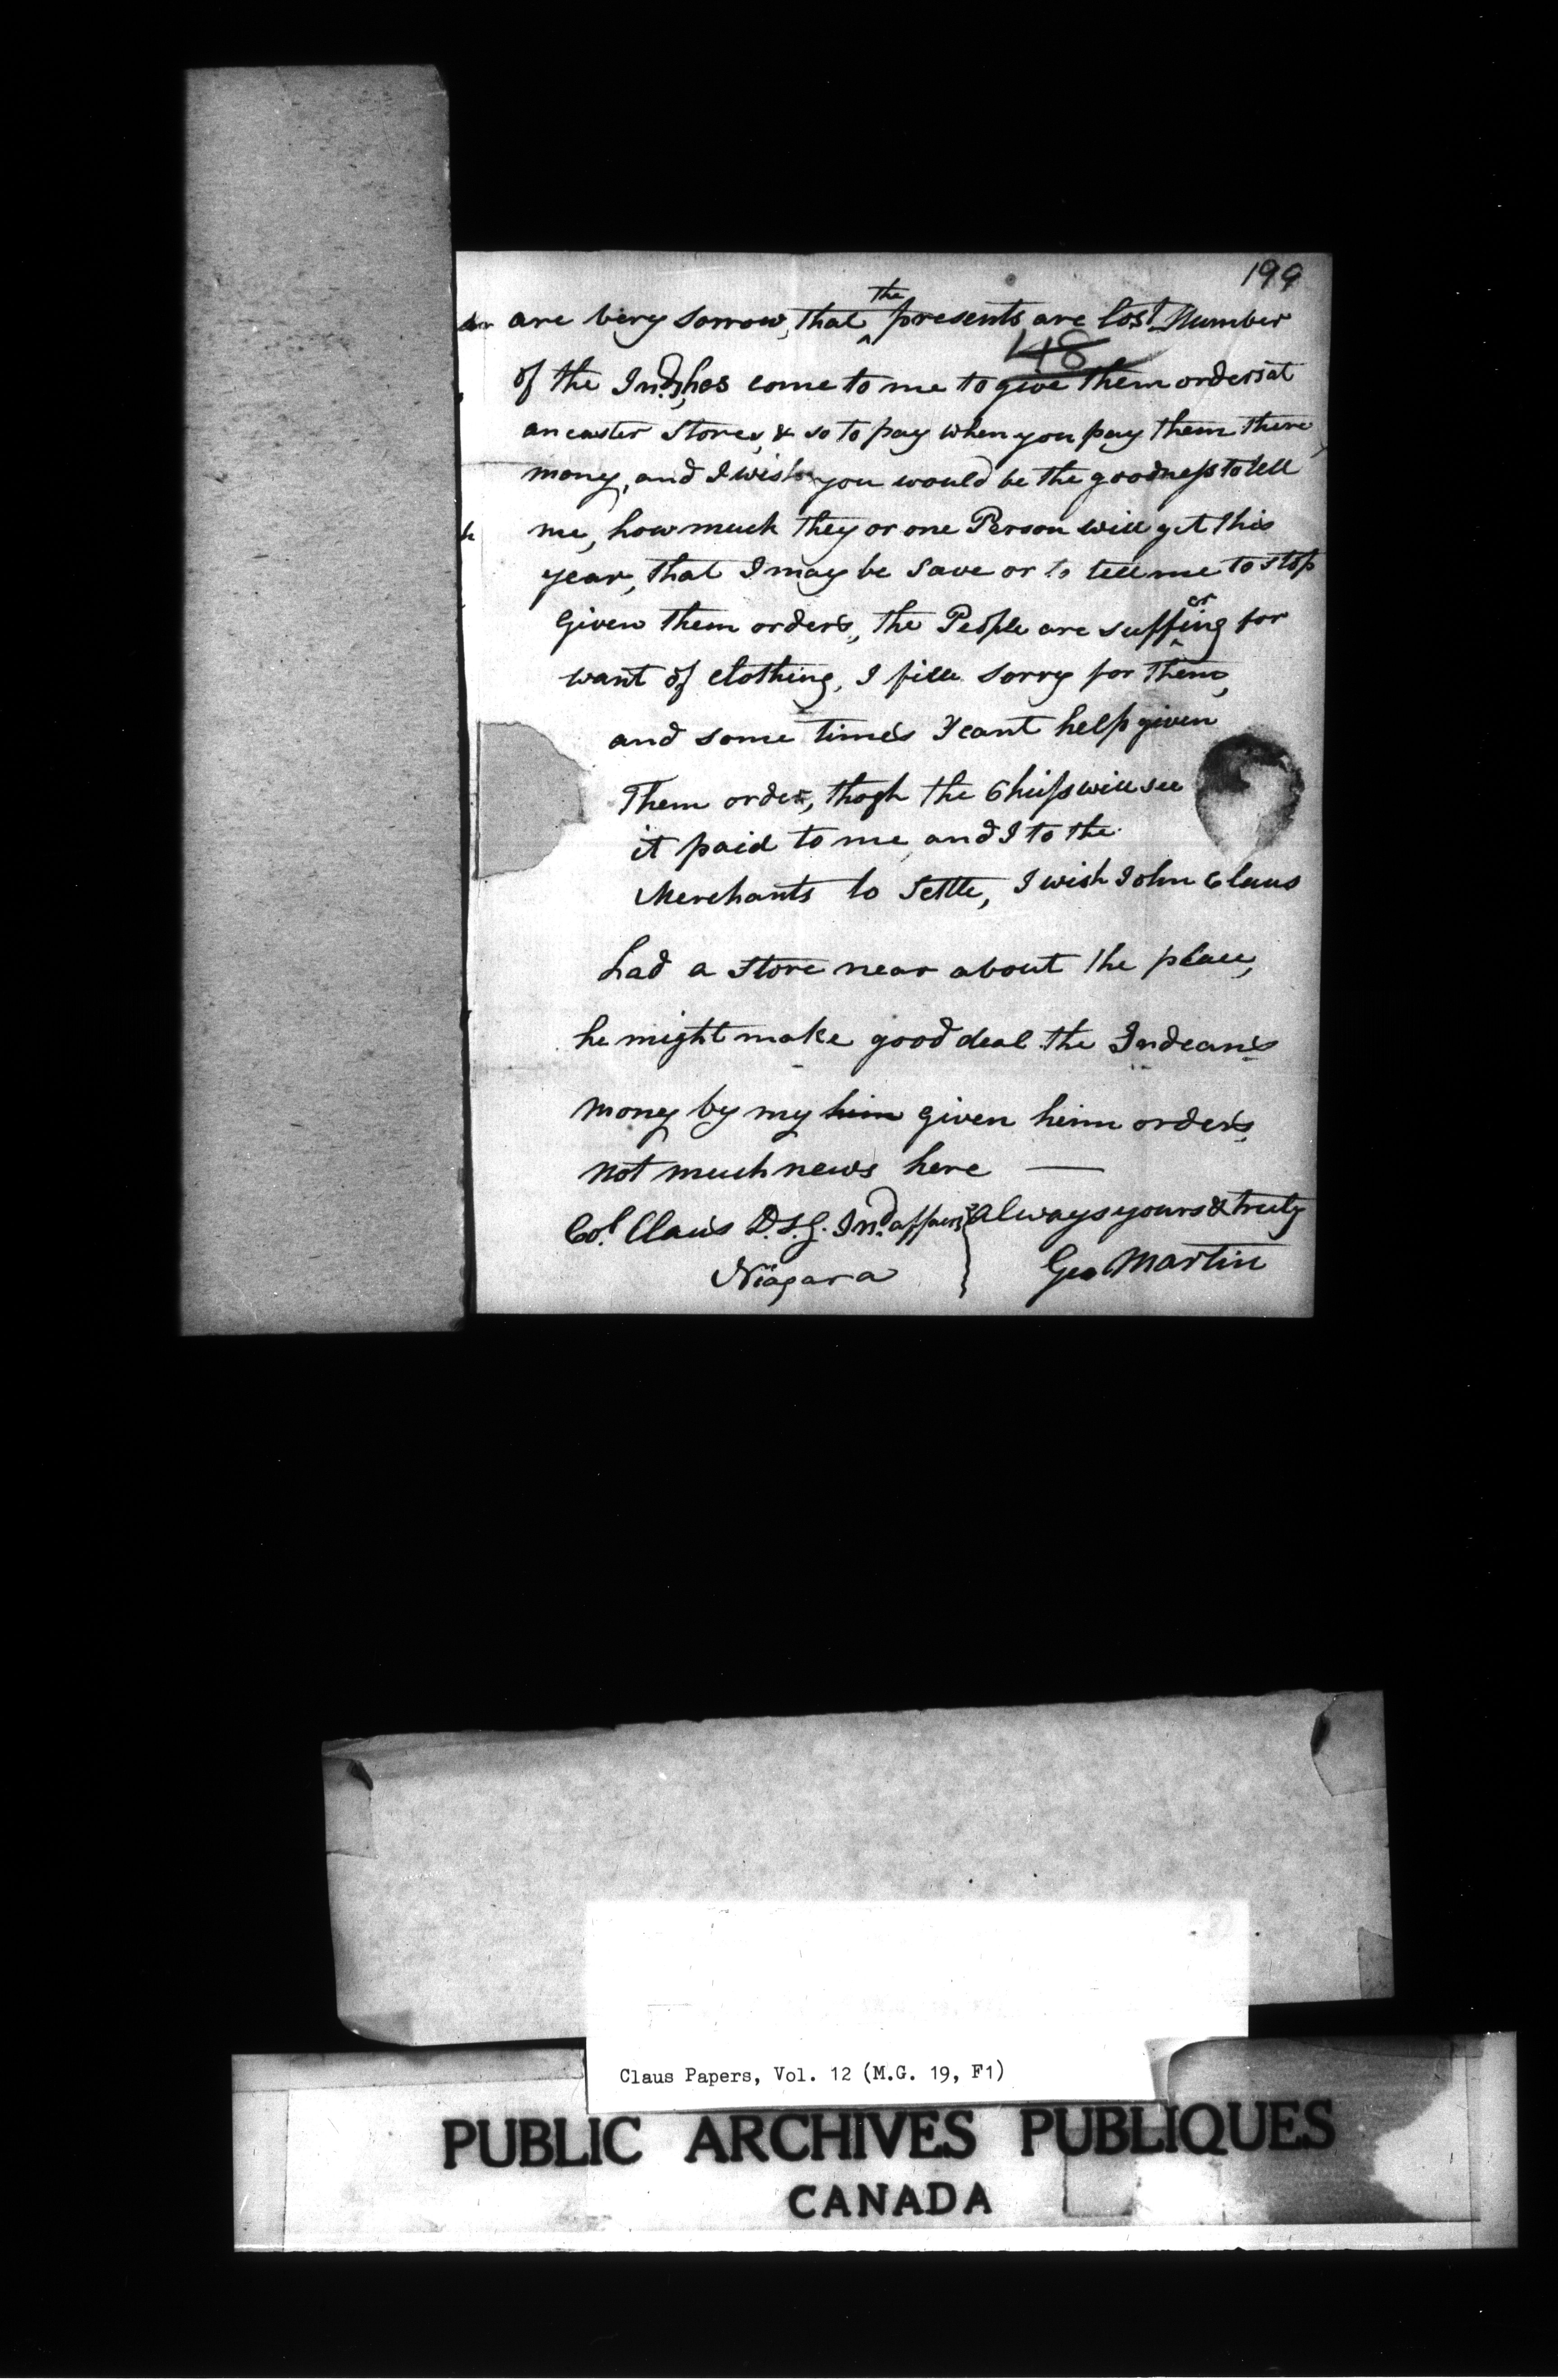 199
are very sorrow, that the presents are lost Number
48
of the Inds, hos come to me to give them orders at
ancaster Stores, & so to pay when you pay them there
mony, and I wish you would be the goodness to tell
me, how much they or one Person will get this
year, that I may be Save or to tell me to stop
Given them orders, the People are suffering for
want of Clothing, I fille sorry for them,
and some times I cant help given
Them order, thogh the Chiefs will see
it paid to me, and I to the
Merchants to Settle, I wish John Claus
had a Store near about the place,
he might make good deal the Indeans
mony by my him given heim orders
not much news here —
Col. Claus D.S.G. Ind. affairs } always yours & truly
Niagara Geo Martin
Claus Papers, Vol. 12 (M.G. 19, F1)
PUBLIC ARCHIVES PUBLIQUES
CANADA